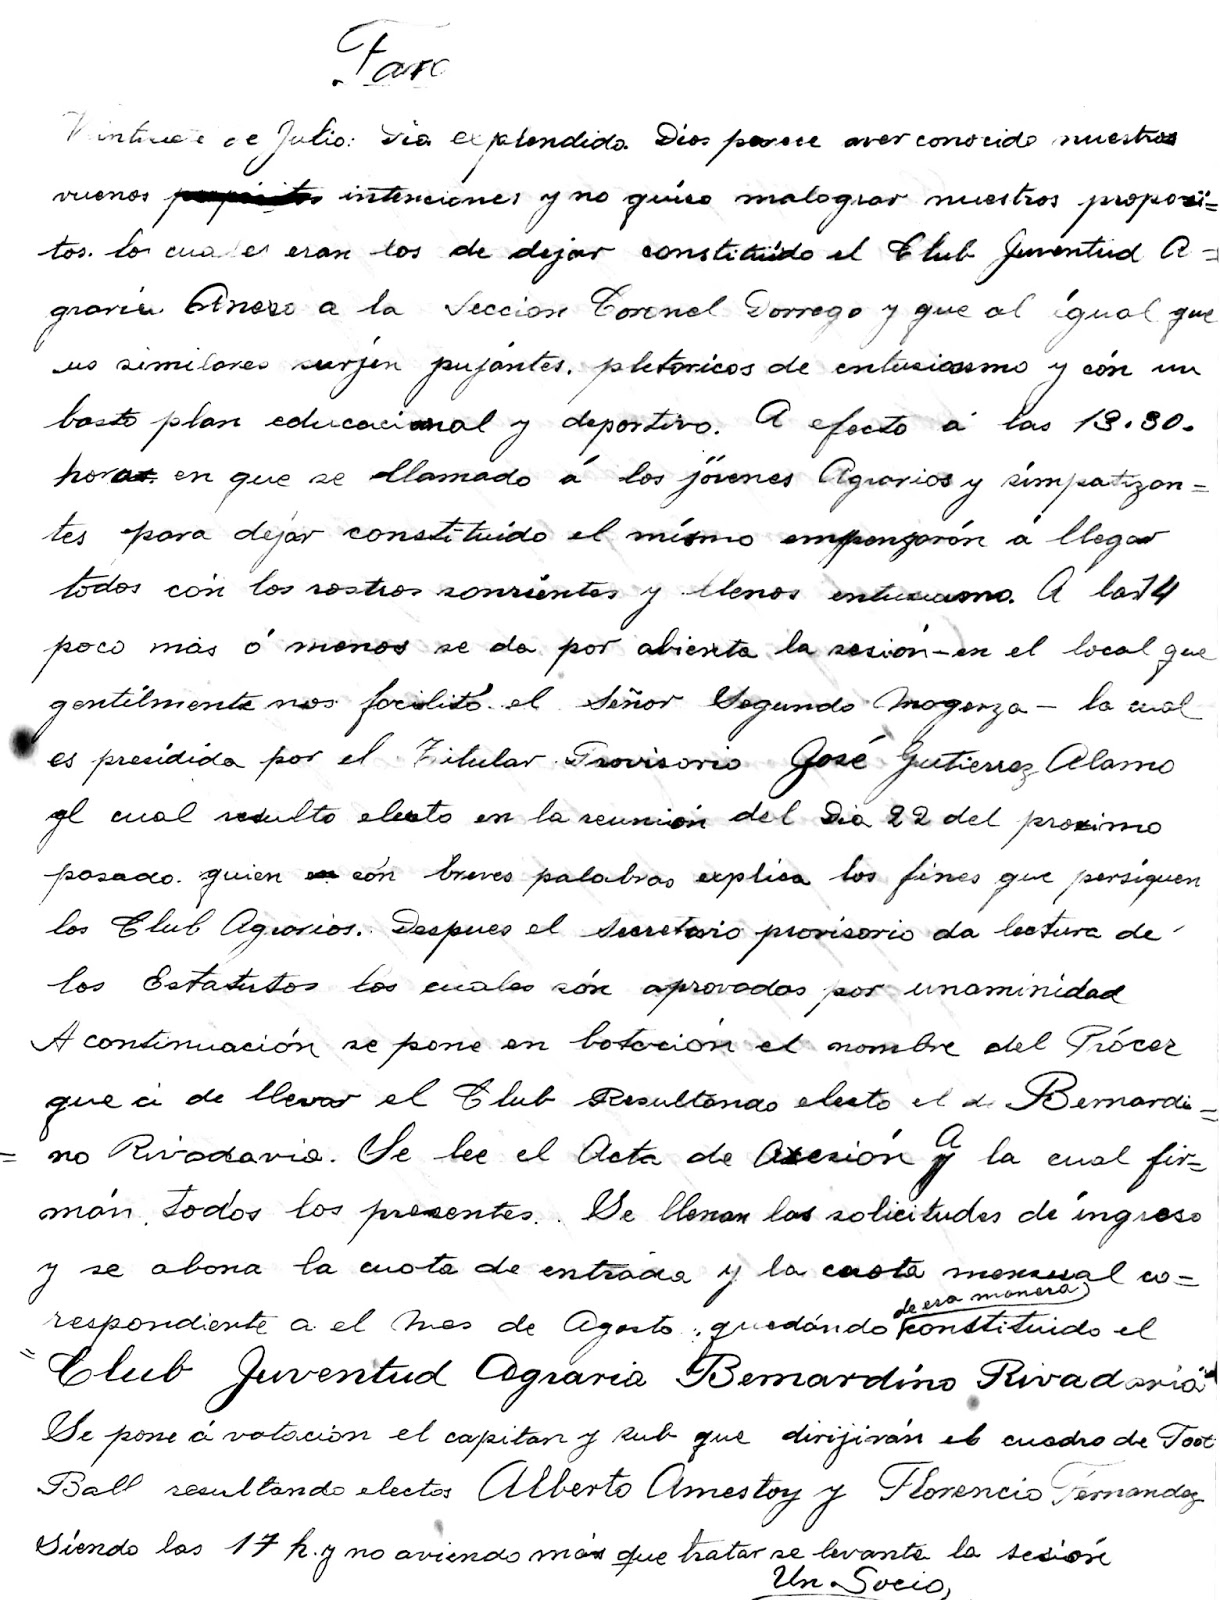 Faro
Vintisiete de Julio: Dia explendido. Dios parece aver conocido nuestras
vuenos intenciones y no quiso malograr nuestros proposi=
tos. lo cuales eran los de dejar constituido el Club Juventud A=
graria Anexo a la Seccion Coronel Dorrego y que al igual que
sus similares surjen pujántes. pletoricos de entusiasmo y cón un
basto plan educacional y deportivo. A efecto á las 13.30.
horas. en que se llamado á los jóvenes Agrarios y simpatizan=
tes para dejar constituido el mismo empenzarón á llegar
todos cón los rostros sonrientes y llenos entusiasmo. A las 14
poco más ó menos se da por abierta la sesión - en el local que
gentilmente nos facilitó el Señor Segundo Mogerza - la cual
es presidida por el Titular Provisorio José Gutierrez Alamo
el cual resulto electo en la reunión del Dia 22 del proximo
pasado. quien cón breves palabras explica los fines que persiguen
los Club Agrarios. Despues el Secretario provisorio da lectura de
los Estatutos los cuales són aprovados por unaminidad
A continuación se pone en botación el nombre del Prócer
que á de llevar el Club Resultando electo el de Bernardi=
=no Rivadavia. Se lee el Acta de Axesión A la cual fir=
mán todos los presentes. Se llenan las solicitudes de ingreso
y se abona la cuota de entrada y la cuota mensual co=
respondiente a el Mes de Agosto, quedándo de esa manera constituido el
"Club Juventud Agraria Bernardino Rivadavia"
Se pone á votación el capitan y sub que dirijirán el cuadro de Foot
Ball resultando electos Alberto Amestoy y Florencio Fernandez
Siendo las 17 h. y no aviendo más que tratar se levanta la sesión
Un Socio,